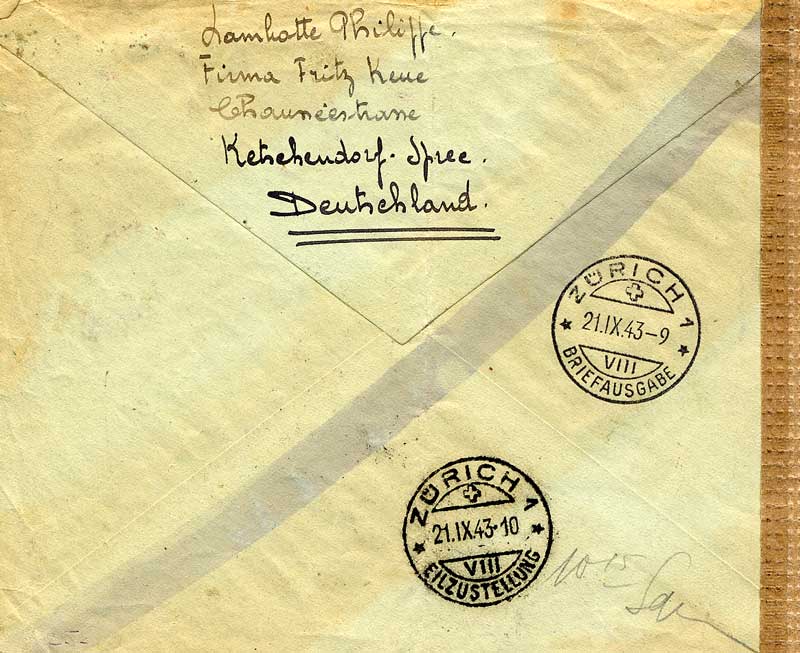 Lamhotte Philippe.
Firma Fritz Keue
Chaunéestrane
Ketschendorf. Spree.
Deutschland.
ZÜRICH 1
21.IX.43-9
VIII
BRIEFAUSGABE
ZÜRICH 1
21.IX.43·10
VIII
EILZUSTELLUNG
10 15